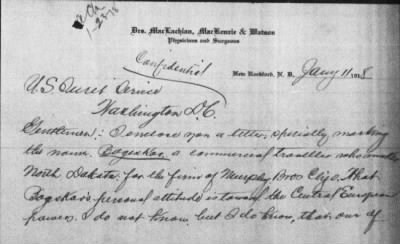 Drs. MacLachlan, MacKenzie & Watson
Physicians and Surgeons
Confidential
New Rockford, N. D., Jany 11 1918
U.S. Secret Service
Washington DC
Gentlemen: I enclose you a letter, specially marking
the name Bogeskov a commercial traveller who makes
North Dakota for the firm of Murphy Bros Chgo. What
Bogeskov's personal attitude is toward the Central European
powers I do not know, but I do know, that one of